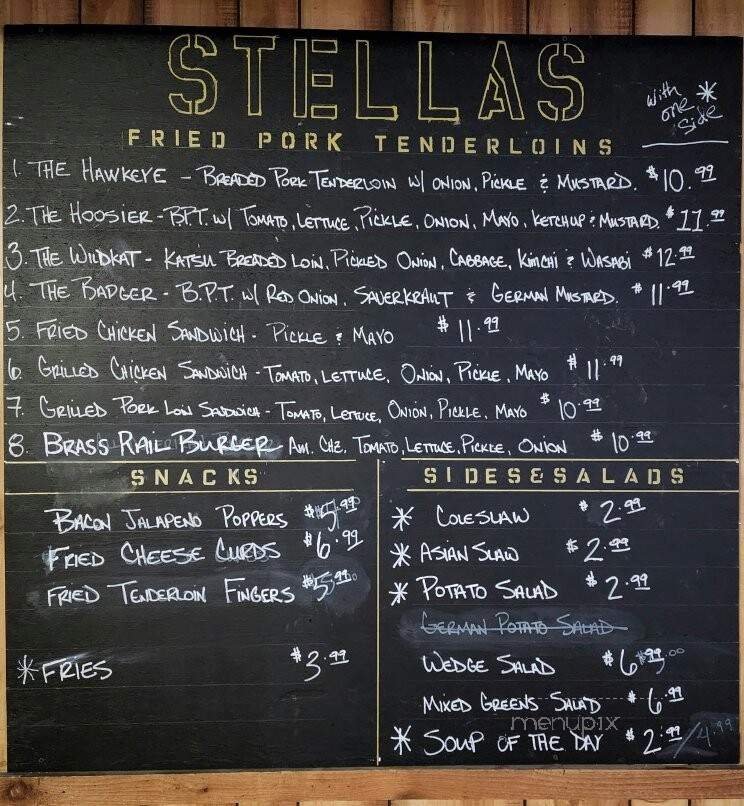 STELLAS
with one side *
FRIED PORK TENDERLOINS
1. THE HAWKEYE - BREADED PORK TENDERLOIN W/ ONION, PICKLE & MUSTARD. $10.99
2. THE HOOSIER - BPT. W/ TOMATO, LETTUCE, PICKLE, ONION, MAYO, KETCHUP & MUSTARD. $11.99
3. THE WILDKAT - KATSU BREADED LOIN, PICKLED ONION, CABBAGE, KIMCHI & WASABI $12.99
4. THE BADGER - B.P.T. W/ RED ONION, SAUERKRAUT & GERMAN MUSTARD. $11.99
5. FRIED CHICKEN SANDWICH - PICKLE & MAYO $11.99
6. GRILLED CHICKEN SANDWICH - TOMATO, LETTUCE, ONION, PICKLE, MAYO $11.99
7. GRILLED PORK LOIN SANDWICH - TOMATO, LETTUCE, ONION, PICKLE, MAYO $10.99
8. BRASS RAIL BURGER AM. CHZ. TOMATO, LETTUCE, PICKLE, ONION $10.99
SNACKS
BACON JALAPENO POPPERS $5.99
FRIED CHEESE CURDS $6.99
FRIED TENDERLOIN FINGERS $5.99
* FRIES $3.99
SIDES & SALADS
* COLESLAW $2.99
* ASIAN SLAW $2.99
* POTATO SALAD $2.99
GERMAN POTATO SALAD
WEDGE SALAD $6.99
MIXED GREENS SALAD $6.99
menupix
* SOUP OF THE DAY $2.99/4.99